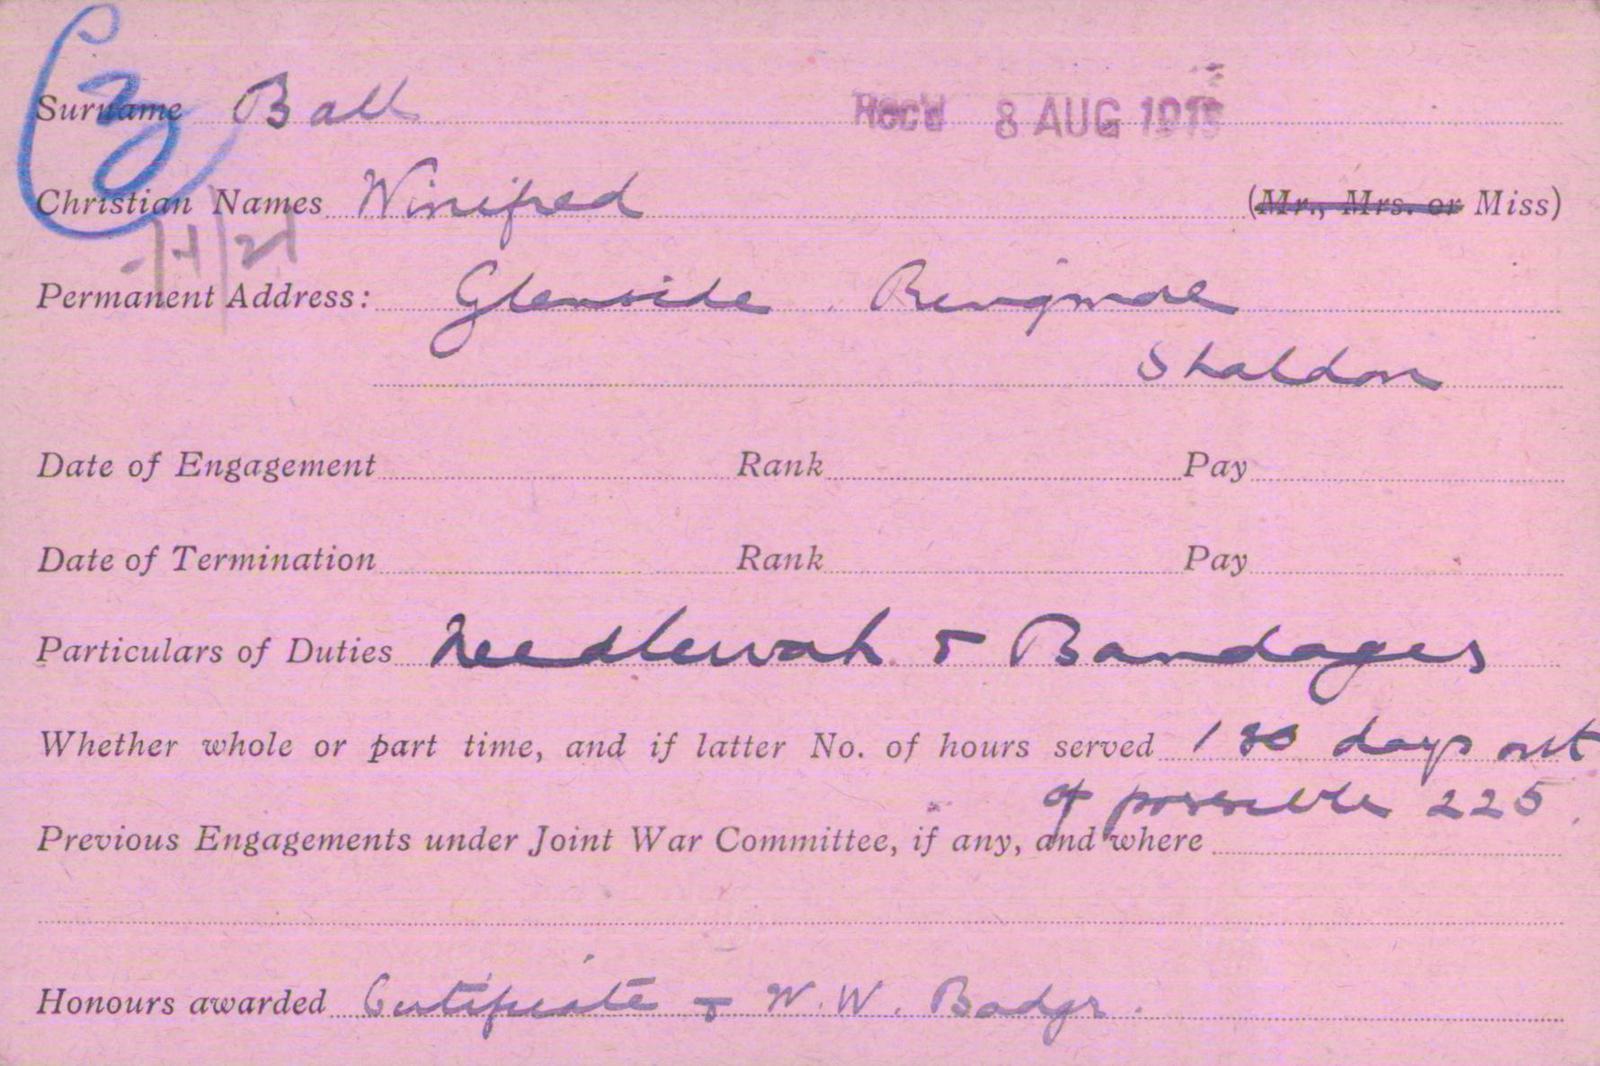 Surname Ball Rec'd 8 AUG 191
Christian Names Winifred (Mr., Mrs. or Miss)
Permanent Address: Glenside. Ringmore
Shaldon
Date of Engagement Rank Pay
Date of Termination Rank Pay
Particulars of Duties Needlework & Bandages
Whether whole or part time, and if latter No. of hours served 180 days out
of possible 225.
Previous Engagements under Joint War Committee, if any, and where
Honours awarded Certificate & W.W. Badge.